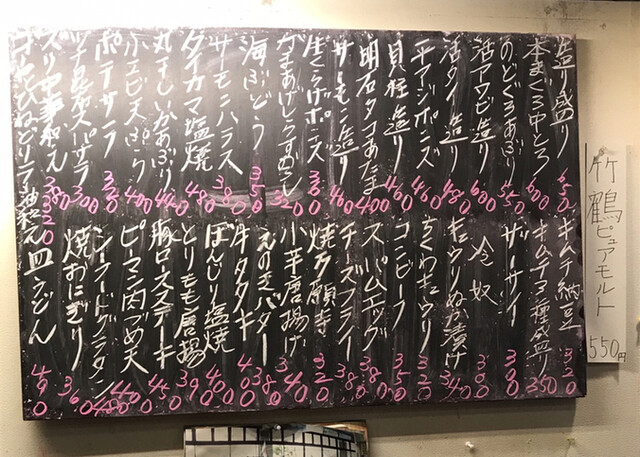 造り盛り 650
本まぐろ中とろ 600
のどぐろあぶり 550
活アワビ造り 600
活タイ造り 480
平アジポンズ 460
貝柱造り 460
明石タコあたま 400
サーモン造り 460
生くらげポンズ 380
かまあげしらすおろし 320
海ぶどう 350
サーモンハラス 380
タイカマ塩焼 480
丸干しいかあぶり 400
小エビ天ぷら 400
ポテサラ 320
ツナ昆布スーサラ 300
ズリ中華和え 380
ゴーヤとひねどりラー油和え 320
キムチ納豆 320
キムチ3種盛り 350
ザーサイ 300
冷奴 300
キュウリぬか漬け 340
ちくわキュウリ 320
コンビーフ 350
スパムエッグ 380
チーズフライ 380
焼万願寺 320
小芋唐揚げ 340
えのきバター 380
牛タタキ
ぼんじり塩焼 400
とりもも唐揚 390
豚ロースステーキ 450
ピーマン肉づめ天 400
シーフードグラタン 480
焼おにぎり 360
皿うどん 490
竹鶴ピュアモルト 550円